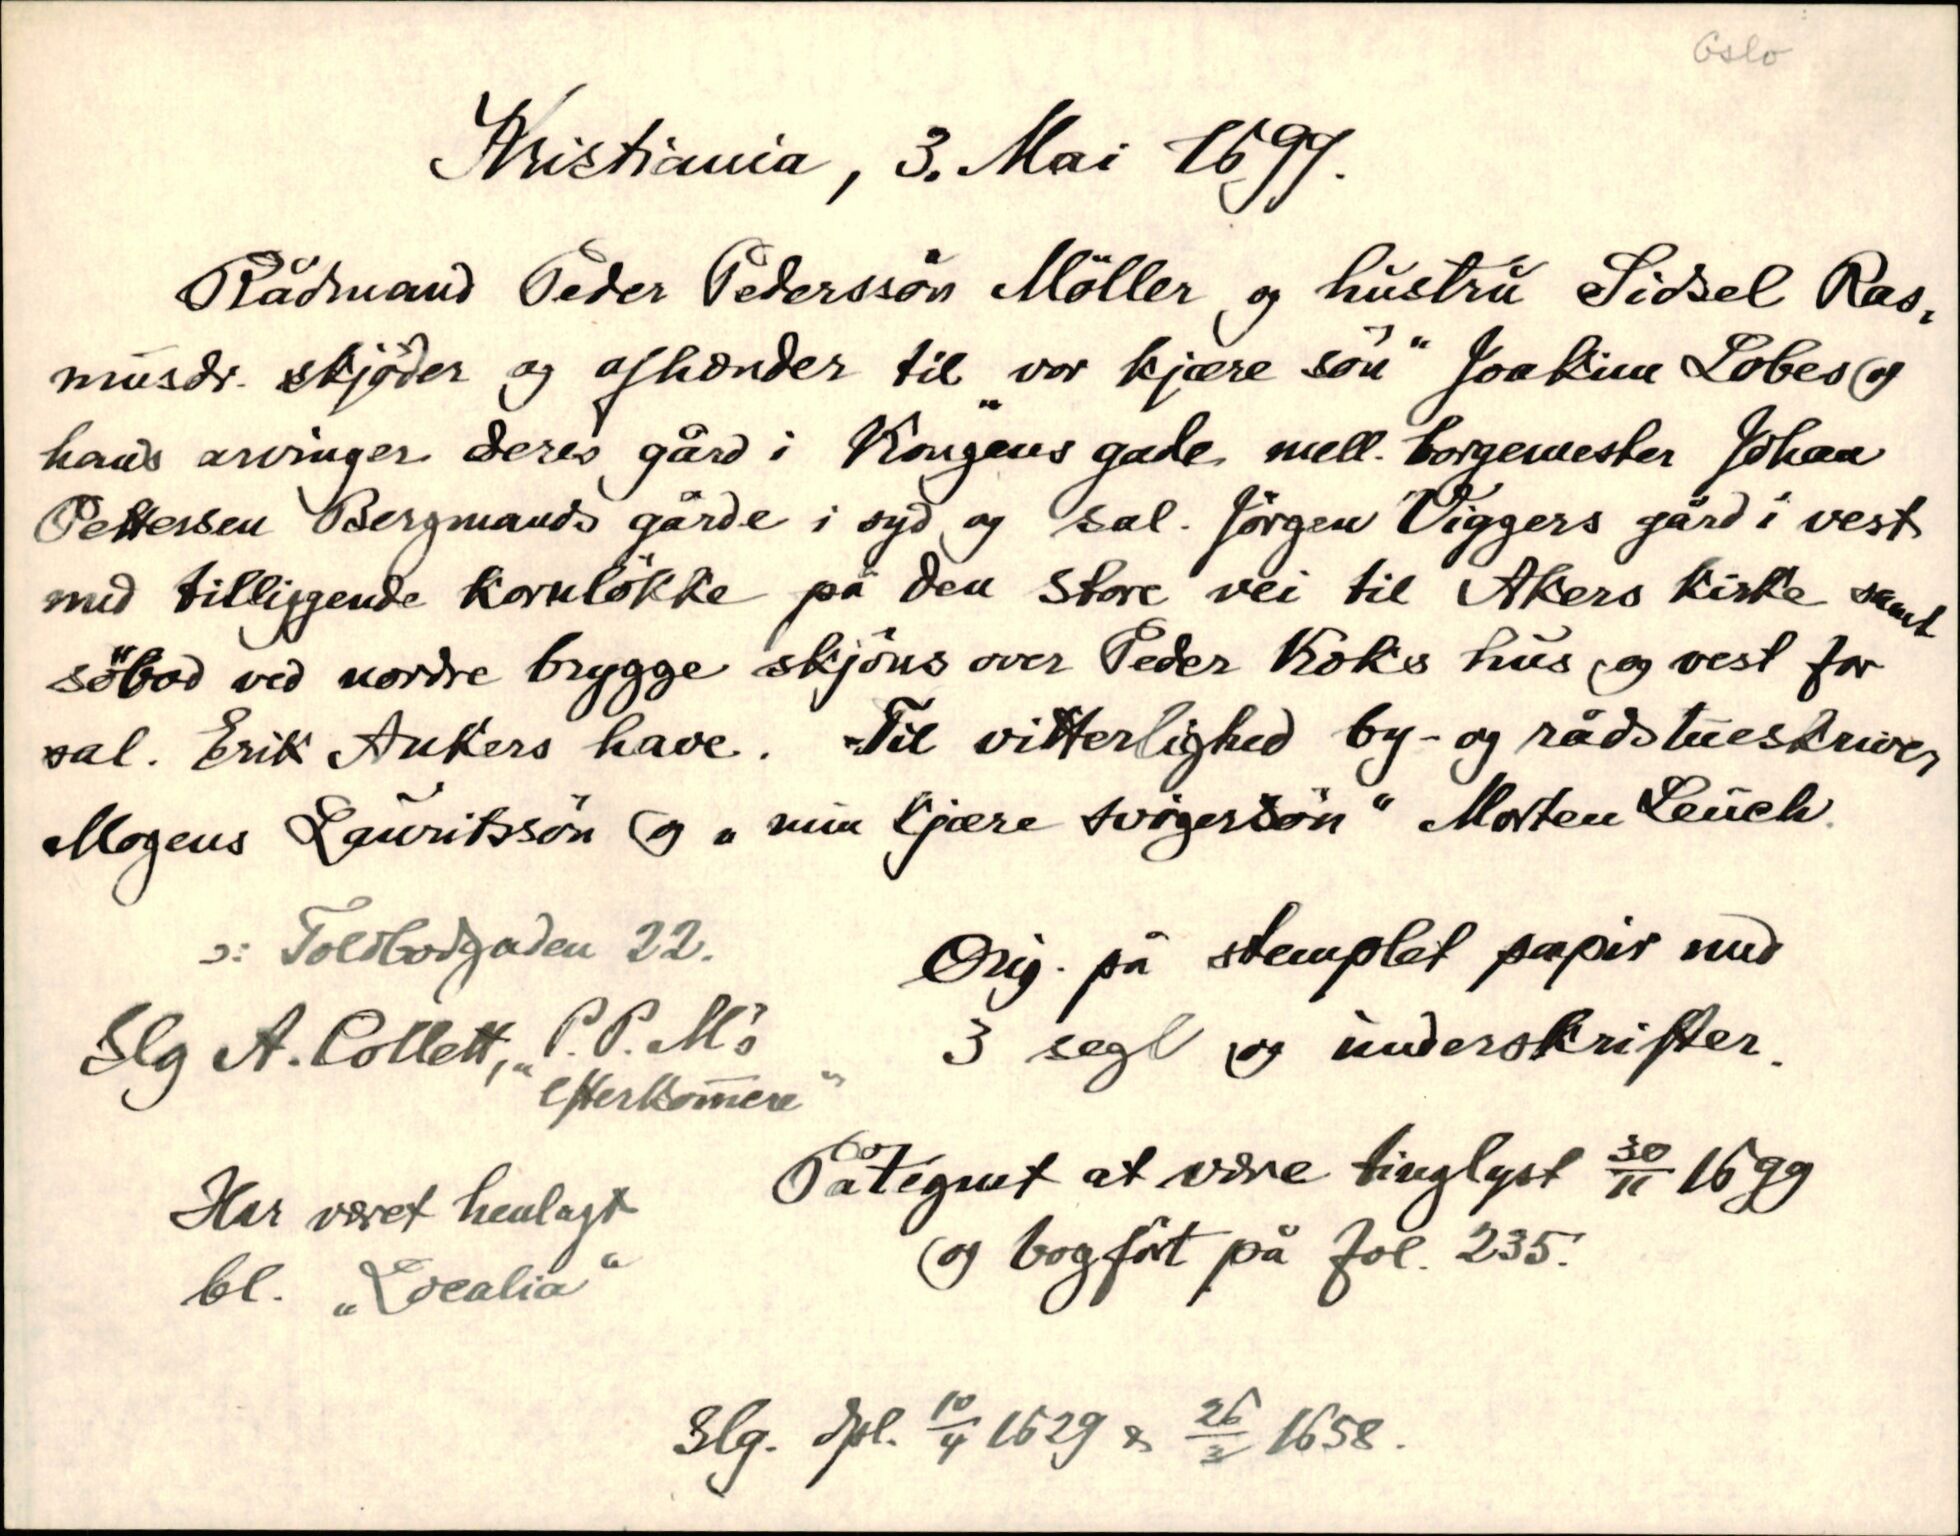 Oslo
Kristiania, 3. Mai 1699.
Rådmand Peder Pederssön Möller og hustru Sidsel Ras-
musdr. skjöder og afhænder til „vor kjære sön“ Joakim Lobes og
hans arvinger deres gård i Kongens gade mell. borgemester Johan
Pettersen Bergmands gårde i syd og sal. Jörgen Viggers gård i vest
med tilliggende kornlökke på den store vei til Akers kirke samt
söbod ved nordre brygge skjöns over Peder Koks hus og vest for
sal. Erik Ankers have. Til vitterlighed by- og rådstueskriver
Mogens Lauritssön og „min kjære svigersön“ Morten Leuch.
ɔ: Toldbodgaden 22.
Orig. på stemplet papir med
3 segl og underskrifter.
Slg A. Collett, „P. P. M's
efterkommere“
Påtegnet at være tinglyst 30/11 1699
og bogfört på fol. 235.
Har været henlagt
bl. „Localia“
Slg. dpl. 10/4 1629 & 26/3 1658.